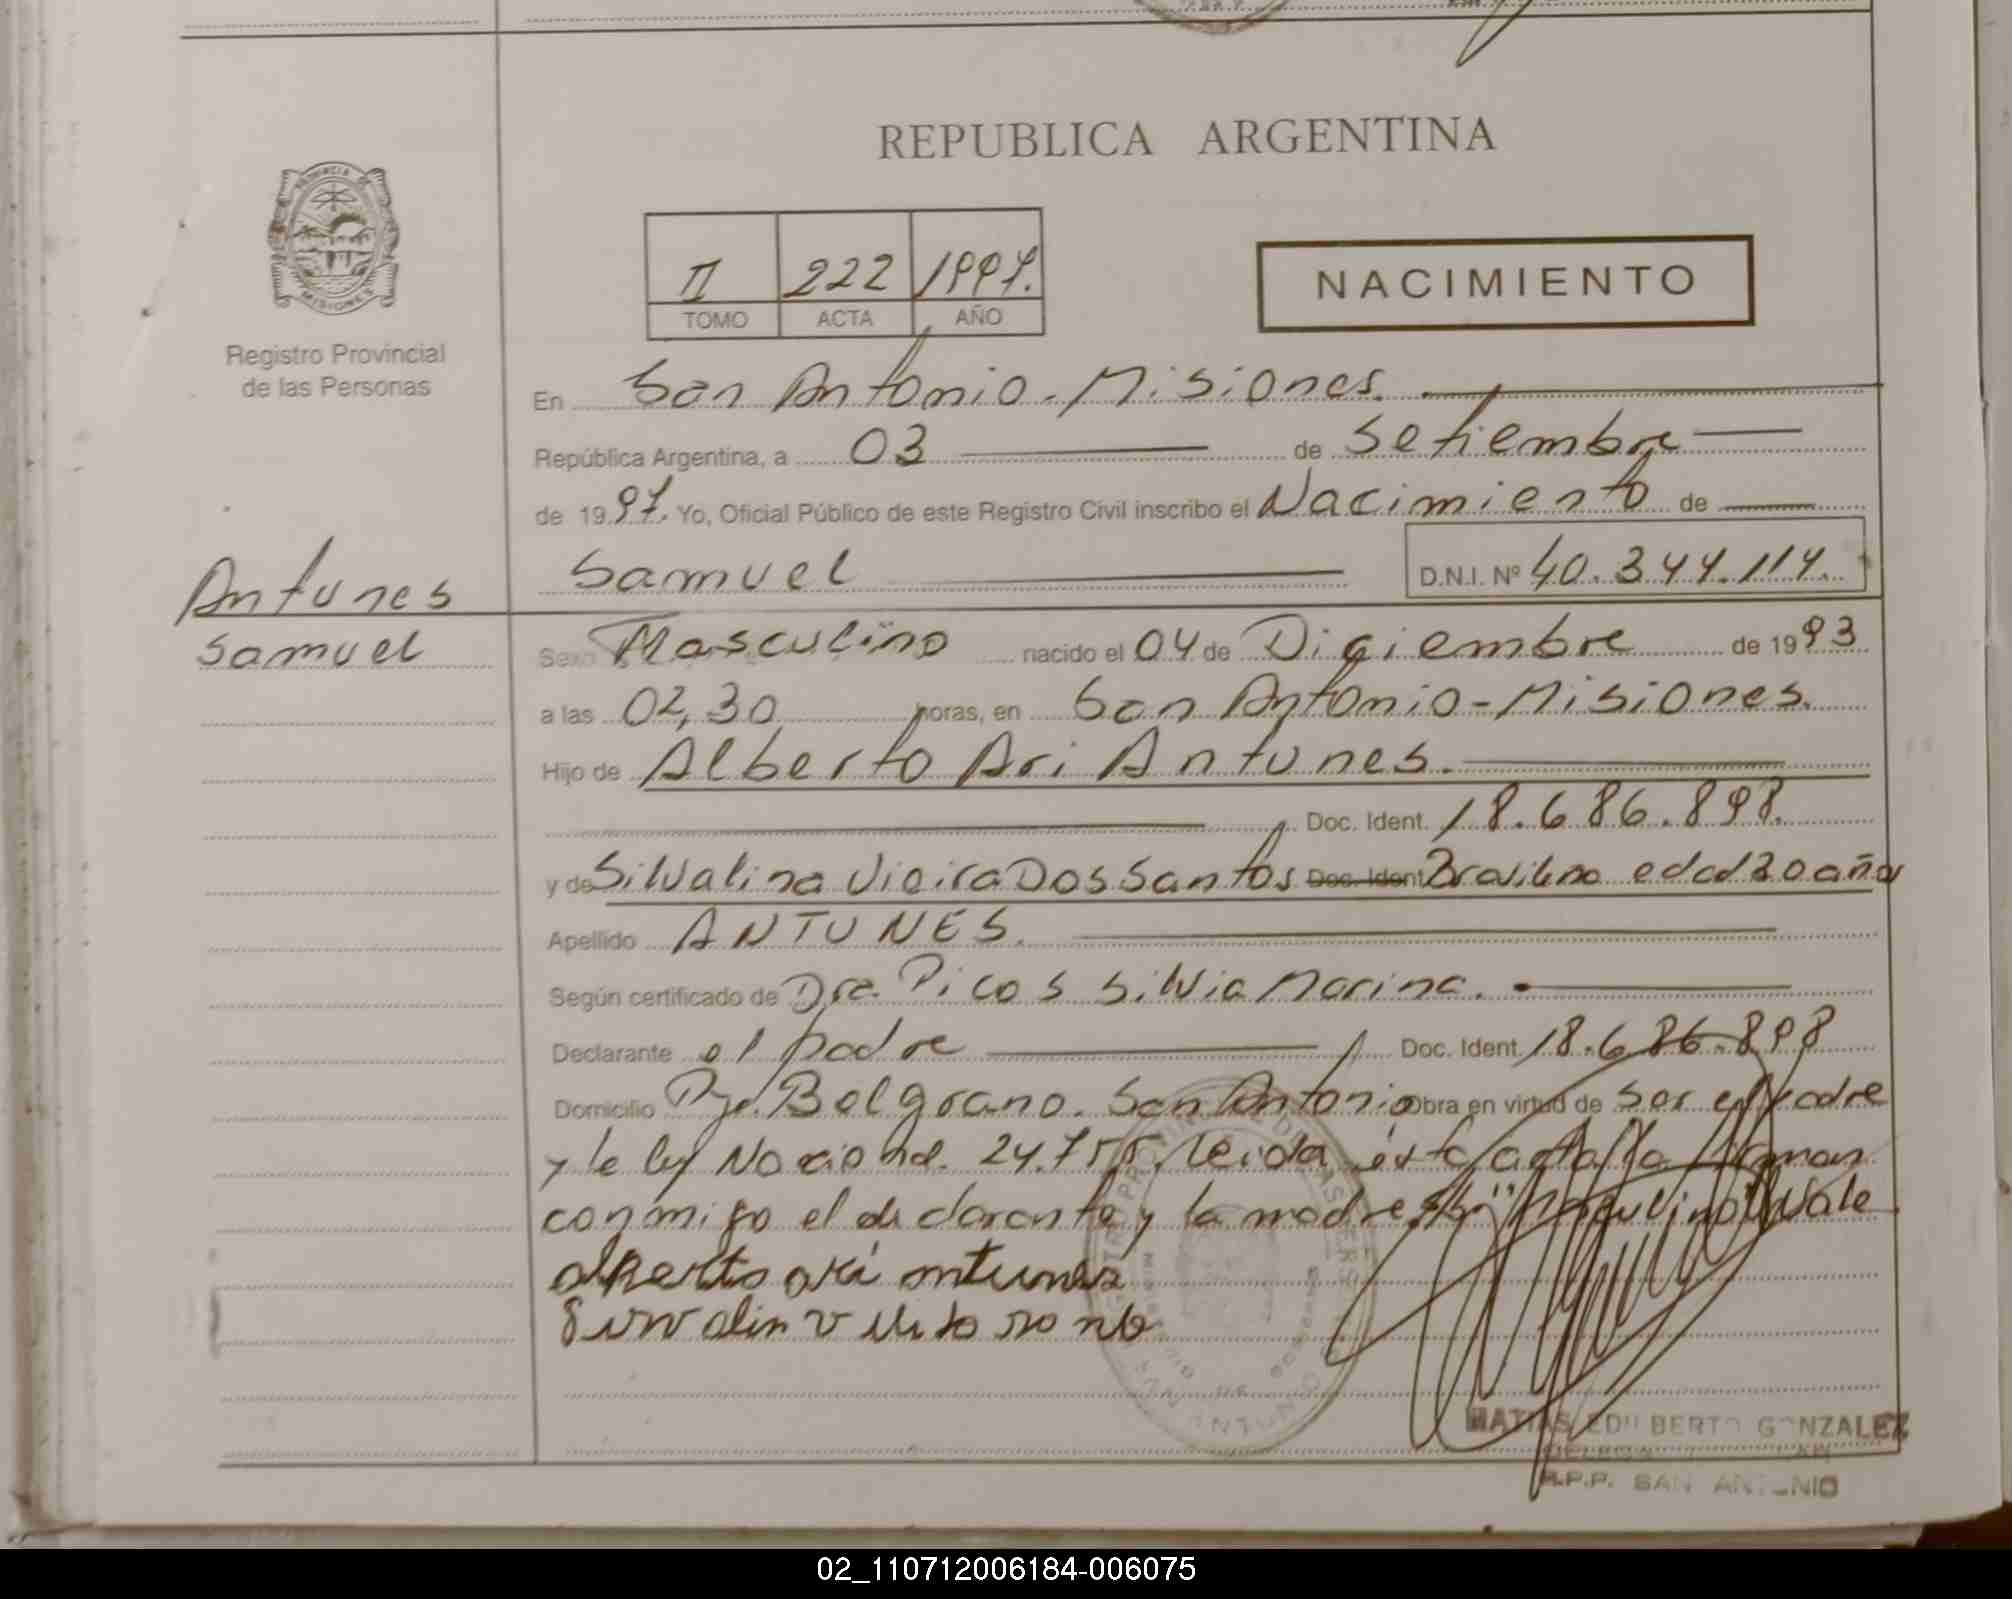 REPUBLICA ARGENTINA
PROVINCIA DE
MISIONES
Registro Provincial
de las Personas
II 222 1997.
TOMO ACTA AÑO
NACIMIENTO
En San Antonio - Misiones.
República Argentina, a 03 de Setiembre
de 1997. Yo, Oficial Público de este Registro Civil inscribo el Nacimiento de
Samuel D.N.I. Nº 40.344.114.
Antunes
Samuel
Sexo Masculino nacido el 04 de Diciembre de 1993
a las 02,30 horas, en San Antonio - Misiones.
Hijo de Alberto Ari Antunes.
Doc. Ident. 18.686.898.
y de Silvalina Vieira Dos Santos Doc. Ident Brasilena edad 20 años
Apellido ANTUNES.
Según certificado de Dra. Picos Silvia Marina.
Declarante el padre Doc. Ident. 18.686.898
Domicilio Pje. Belgrano. San Antonio Obra en virtud de ser el padre
y la ley Nacional. 24.755. leida esta acta la firman
conmigo el declarante y la madre Vale
alberto ari antunes
MATIAS EDILBERTO GONZALEZ
R.P.P. SAN ANTONIO
02_110712006184-006075